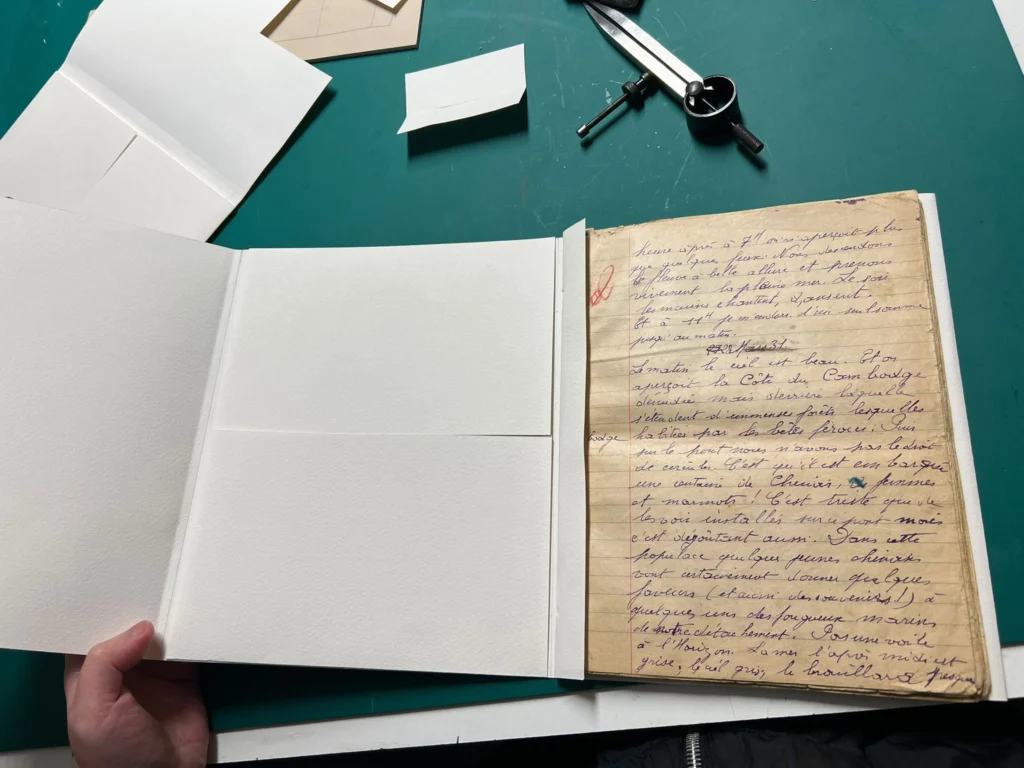 heure après à 7H on n'aperçoit plus
que quelques feux. Nous descendons
le fleuve à belle allure et prenons
vivement la pleine mer. Le soir
les marins chantent, dansent.
Et à 11H je m'endors d'un seul somme
jusqu'au matin.
Mars 31
Le matin le ciel est beau. Et on
aperçoit la Côte du Cambodge
dénudée mais derrière laquelle
s'étendent d'immenses forêts lesquelles
habitées par les bêtes féroces.
sur le pont nous n'avons pas le droit
de circuler. C'est qu'il est embarqué
une centaine de Chinois, femmes
et marmots ! C'est triste que de
les voir installés sur ce pont mais
c'est dégoûtant aussi. Dans cette
populace quelques jeunes chinoises
vont certainement donner quelques
faveurs (et aussi des souvenirs !) à
quelques uns des fougueux marins
de notre détachement. Pas une voile
à l'Horizon. La mer l'après midi est
grise, le ciel gris, le brouillard presque